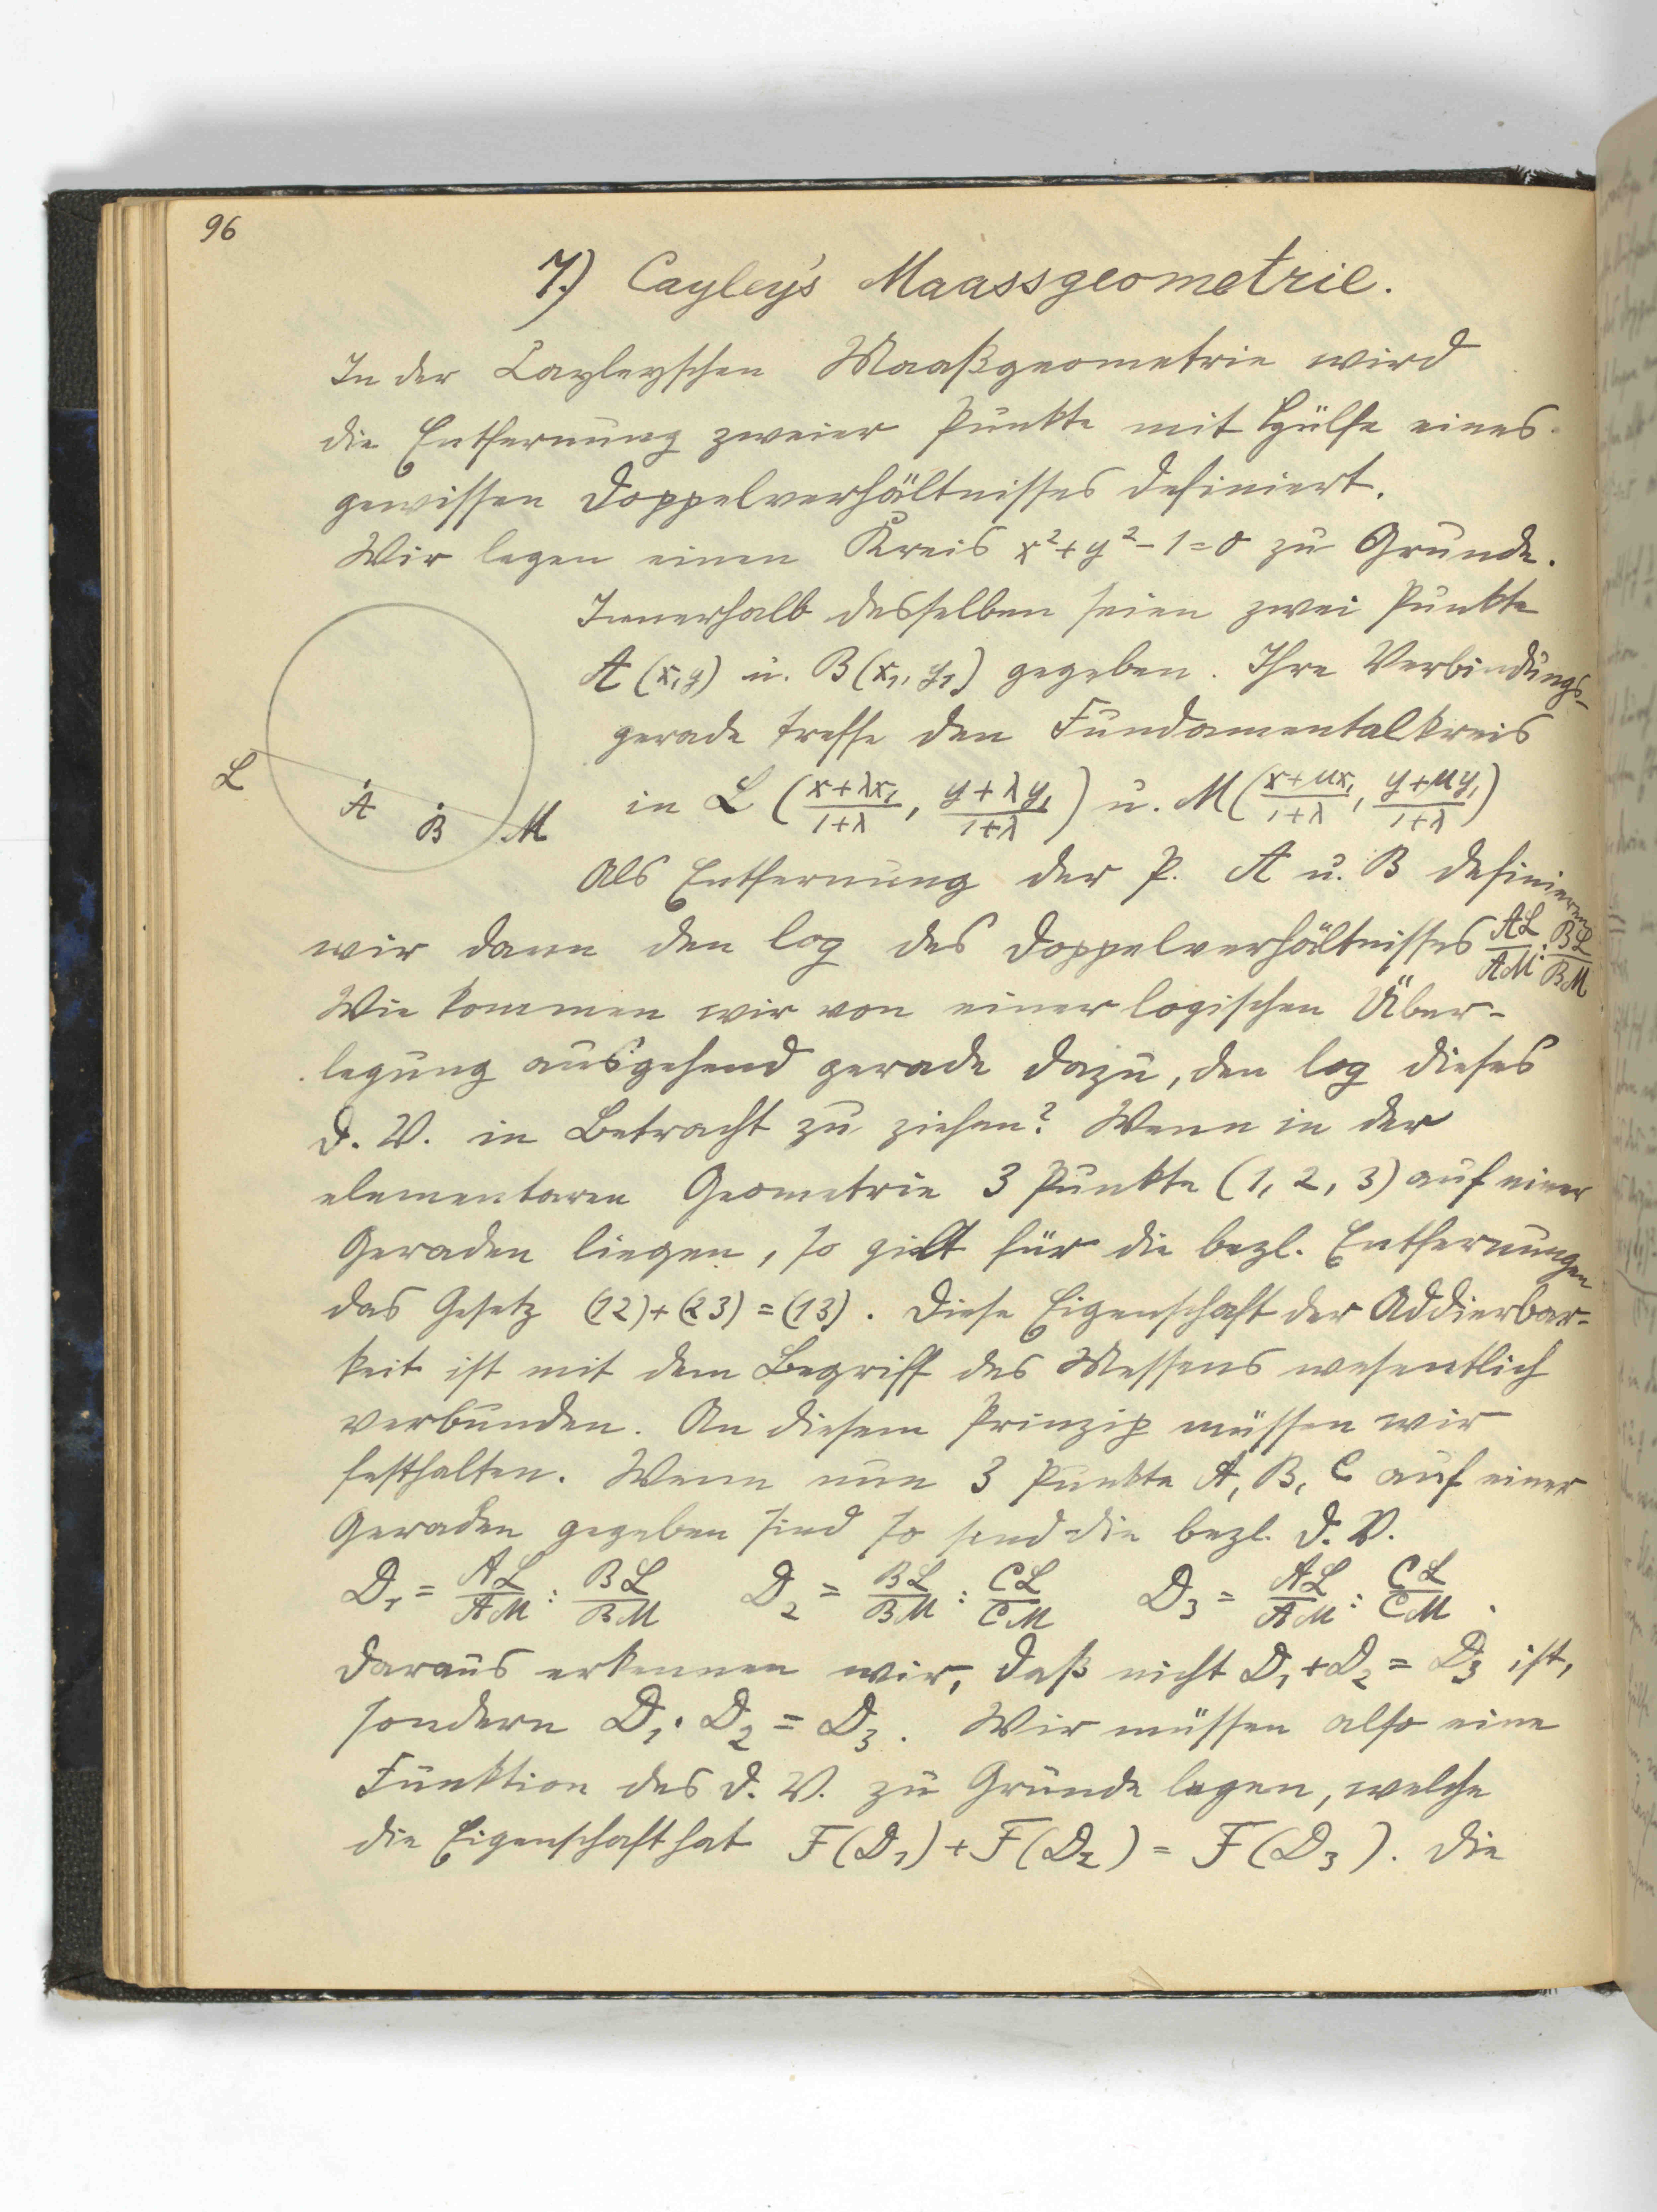 96
7.) Cayley's Maassgeometrie.
In der Cayleyschen Maaßgeometrie wird
die Entfernung zweier Punkte mit Hülfe eines
gewissen Doppelverhältnisses definiert.
Wir legen einen Kreis x²+y²-1=0 zu Grunde.
Innerhalb desselben seien zwei Punkte
A (x,y) u. B(x₁, y₁) gegeben. Ihre Verbindungs-
gerade treffe den Fundamentalkreis
in L ((x+λx₁)/(1+λ), (y+λy₁)/(1+λ)) u. M((x+μx₁)/(1+λ), (y+μy₁)/(1+λ))
L
A
B
M
Als Entfernung der P. A u. B definieren
wir dann den log des Doppelverhältnisses AL/AM : BL/BM
Wie kommen wir von einer logischen Über-
legung ausgehend gerade dazu, den log dieses
D. V. in Betracht zu ziehen? Wenn in der
elementaren Geometrie 3 Punkte (1, 2, 3) auf einer
Geraden liegen, so gilt für die bezl. Entfernungen
das Gesetz (12)+(23)=(13). Diese Eigenschaft der Addierbar-
keit ist mit dem Begriff des Messens wesentlich
verbunden. An diesem Prinzip müssen wir
festhalten. Wenn nun 3 Punkte A, B, C auf einer
Geraden gegeben sind so sind die bezl. D. V.
D₁ = AL/AM : BL/BM D₂ = BL/BM : CL/CM D₃ = AL/AM : CL/CM .
Daraus erkennen wir, daß nicht D₁+D₂ = D₃ ist,
sondern D₁ · D₂ = D₃. Wir müssen also eine
Funktion des D. V. zu Grunde legen, welche
die Eigenschaft hat F(D₁)+F(D₂) = F(D₃). Die